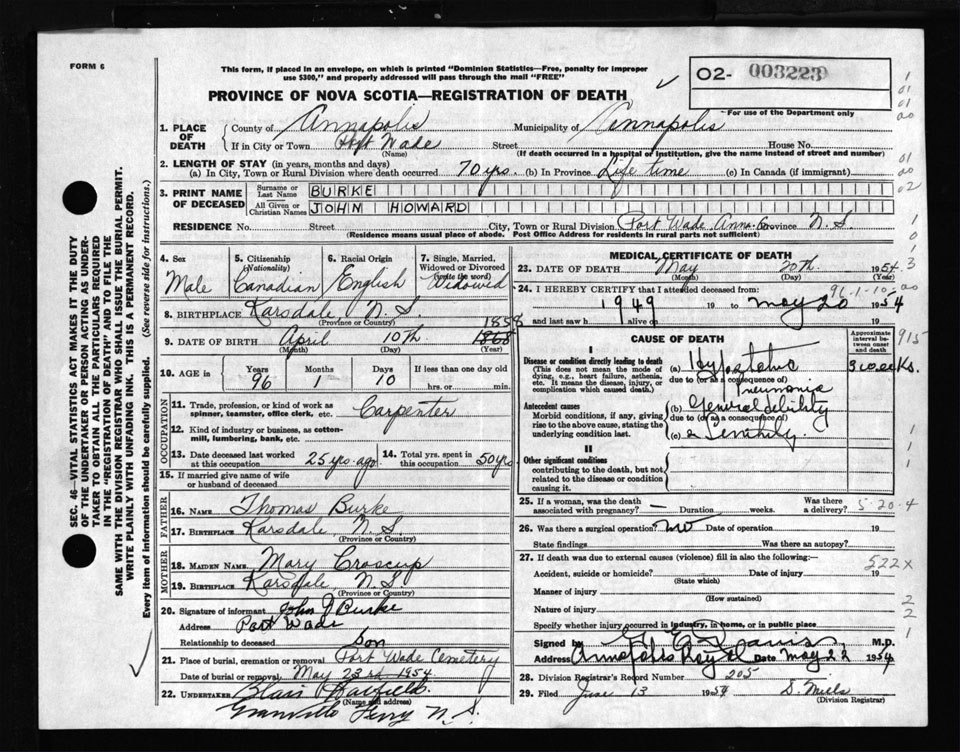 FORM 6
This form, if placed in an envelope, on which is printed "Dominion Statistics—Free, penalty for improper
use $300," and properly addressed will pass through the mail "FREE"
02- 003223
For use of the Department only
PROVINCE OF NOVA SCOTIA—REGISTRATION OF DEATH
1. PLACE OF DEATH
County of Annapolis Municipality of Annapolis
If in City or Town Port Wade Street House No.
(Name) (If death occurred in a hospital or institution, give the name instead of street and number)
2. LENGTH OF STAY (in years, months and days)
(a) In City, Town or Rural Division where death occurred 70 yrs. (b) In Province Life time (c) In Canada (if immigrant)
3. PRINT NAME OF DECEASED
Surname or Last Name BURKE
All Given or Christian Names JOHN HOWARD
RESIDENCE No. Street City, Town or Rural Division Port Wade Anna Co Province N.S.
(Residence means usual place of abode. Post Office Address for residents in rural parts not sufficient)
4. Sex Male
5. Citizenship (Nationality) Canadian
6. Racial Origin English
7. Single, Married, Widowed or Divorced (write the word) Widowed
8. BIRTHPLACE Karsdale N.S.
(Province or Country)
1858
9. DATE OF BIRTH April 10th 1868
(Month) (Day) (Year)
10. AGE in Years 96 Months 1 Days 10 If less than one day old
hrs. or min.
OCCUPATION
11. Trade, profession, or kind of work as spinner, teamster, office clerk, etc. Carpenter
12. Kind of industry or business, as cotton-mill, lumbering, bank, etc.
13. Date deceased last worked at this occupation 25 yrs. ago
14. Total yrs. spent in this occupation 50 yrs
15. If married give name of wife or husband of deceased
FATHER
16. Name Thomas Burke
17. Birthplace Karsdale N.S.
(Province or Country)
MOTHER
18. Maiden Name Mary Croscup
19. Birthplace Karsdale N.S.
(Province or Country)
20. Signature of informant John J Burke
Address Port Wade
Relationship to deceased Son
21. Place of burial, cremation or removal Port Wade Cemetery
Date of burial or removal May 23rd 1954
22. Undertaker Blair
(Name and address)
Granville Ferry N.S.
MEDICAL CERTIFICATE OF DEATH
23. DATE OF DEATH May 20th 1954
(Month) (Day) (Year)
24. I HEREBY CERTIFY that I attended deceased from: 96-1-10
1949 19 to May 20 1954
and last saw h alive on 19
CAUSE OF DEATH
Approximate interval between onset and death
I
Disease or condition directly leading to death
(This does not mean the mode of dying, e.g., heart failure, asthenia, etc. It means the disease, injury, or complication which caused death.)
(a) Hypostatic 3 weeks.
due to (or as a consequence of)
Pneumonia
Antecedent causes
Morbid conditions, if any, giving rise to the above cause, stating the underlying condition last.
(b) General debility
due to (or as a consequence of)
(c) Senility.
II
Other significant conditions
contributing to the death, but not related to the disease or condition causing it.
25. If a woman, was the death associated with pregnancy? — Duration weeks. Was there a delivery? 5-20-4
26. Was there a surgical operation? no Date of operation 19
State findings Was there an autopsy?
27. If death was due to external causes (violence) fill in also the following:—
522x
Accident, suicide or homicide? Date of injury 19
(State which)
Manner of injury
(How sustained)
Nature of injury
Specify whether injury occurred in industry, in home, or in public place
Signed by M.D.
Address Annapolis Royal Date May 22 1954
28. Division Registrar's Record Number 205
29. Filed June 13 1954 D. Mills
(Division Registrar)
915
SEC. 46—VITAL STATISTICS ACT MAKES IT THE DUTY
OF THE UNDERTAKER OR PERSON ACTING AS UNDER-
TAKER TO OBTAIN ALL THE PARTICULARS REQUIRED
IN THE "REGISTRATION OF DEATH" AND TO FILE THE
SAME WITH THE DIVISION REGISTRAR WHO SHALL ISSUE THE BURIAL PERMIT.
WRITE PLAINLY WITH UNFADING INK. THIS IS A PERMANENT RECORD.
Every item of information should be carefully supplied. (See reverse side for instructions.)